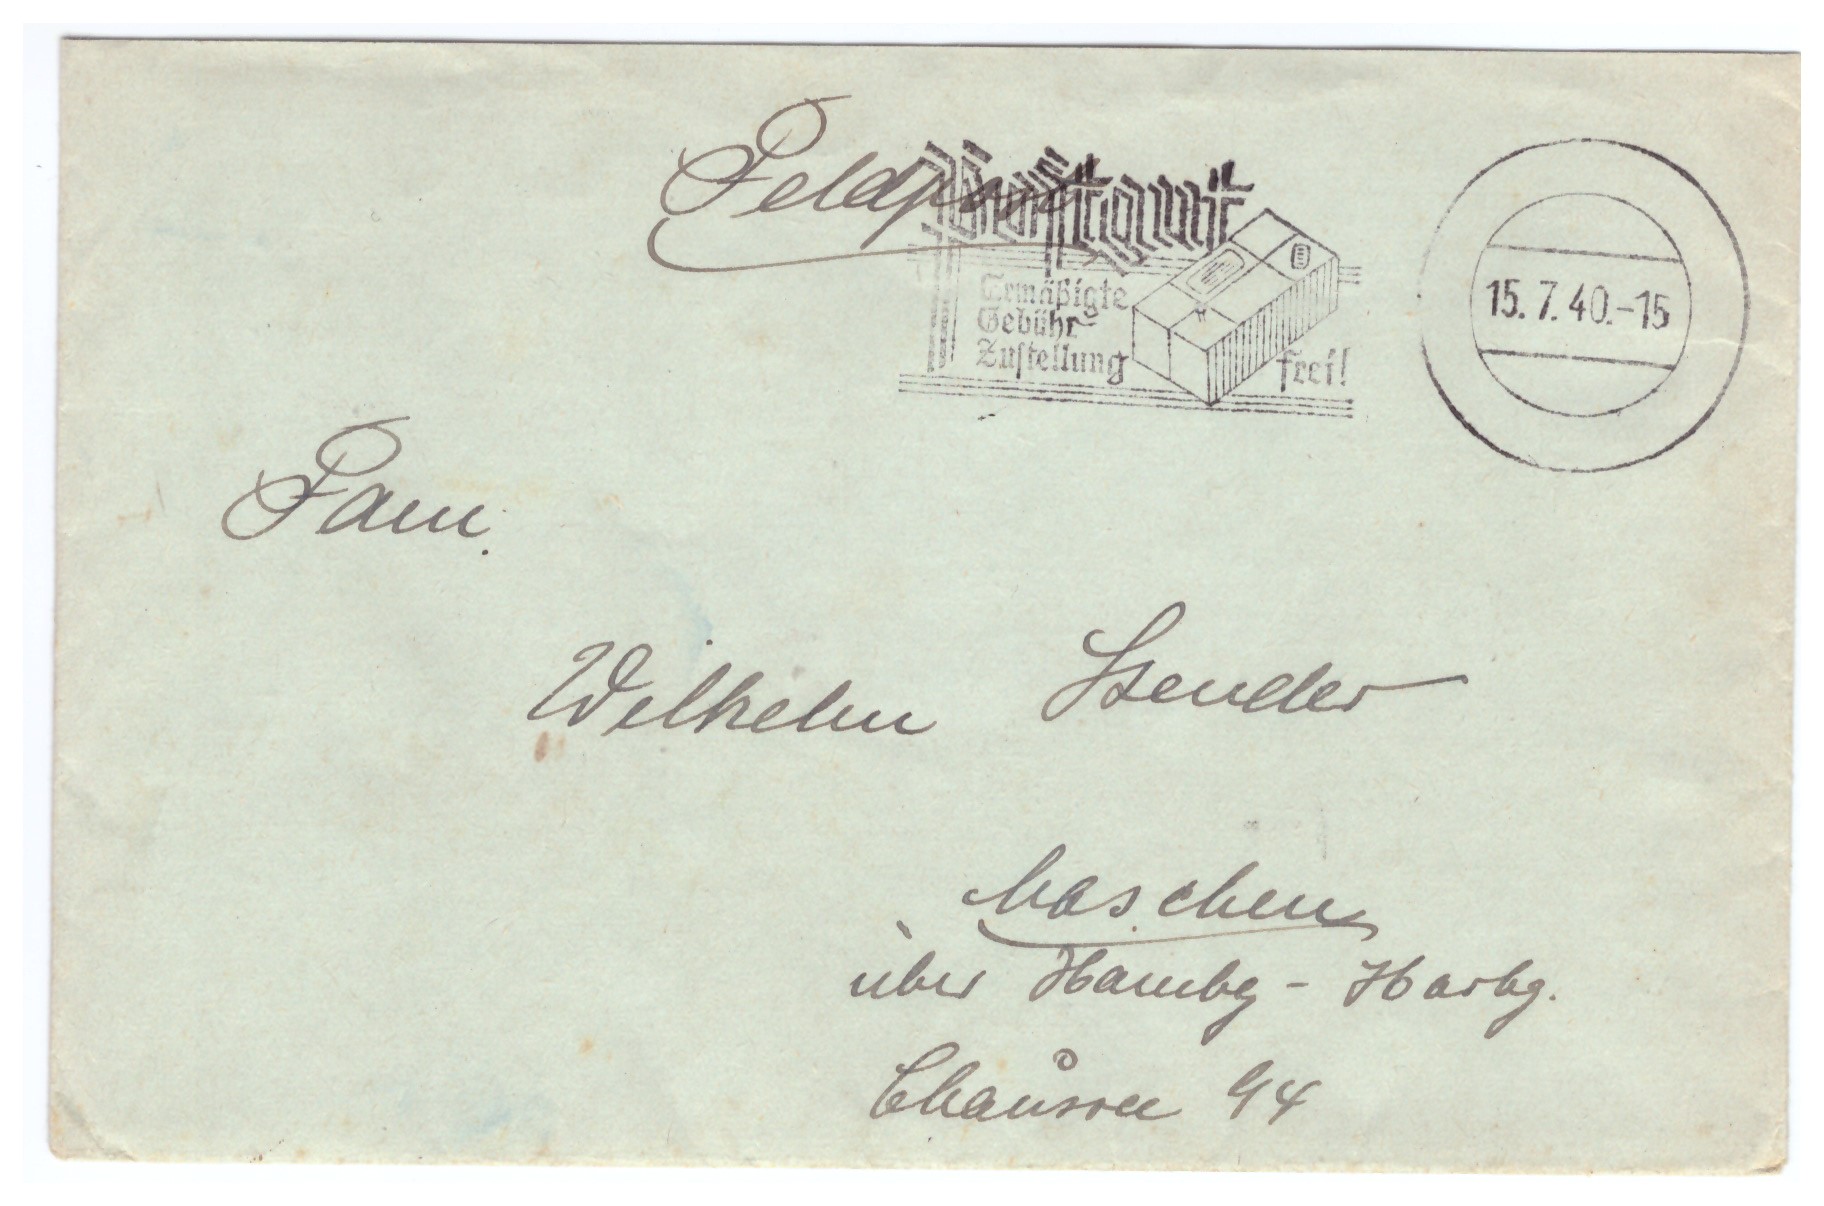 Feldpost
Postgut
Ermäßigte
Gebühr
Zustellung frei!
15.7.40.-15
Fam.
Wilhelm Stender
Maschen
über Hambg - Harbg.
Chaussee 94